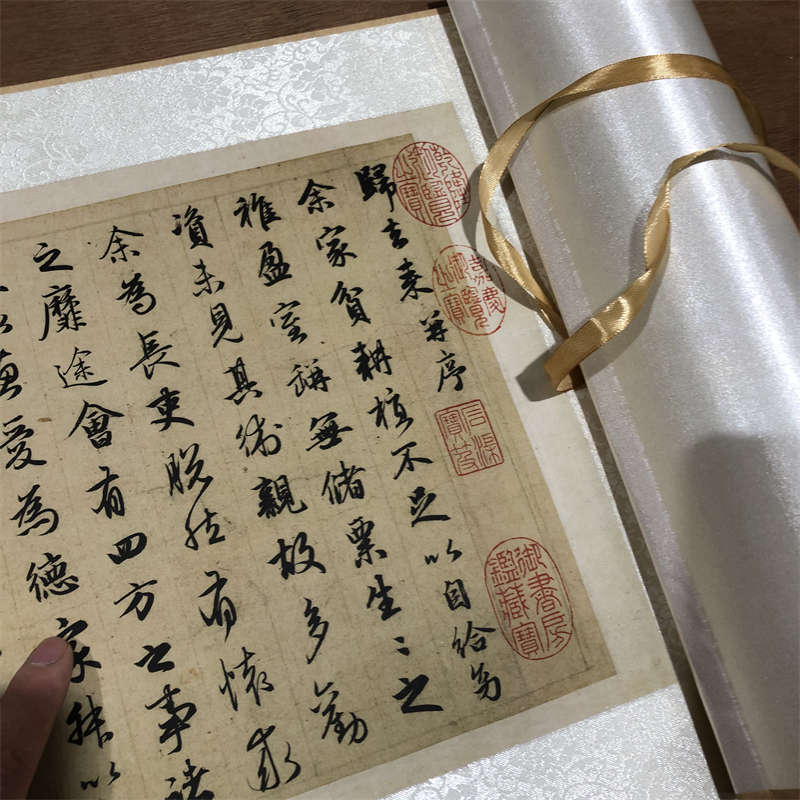 歸去来并序
余家貧耕植不足以自給幼
稚盈室缾無儲粟生〻之
資未見其術親故多勸
余為長吏脫然有懷求
之靡途會有四方之事諸
以惠愛為德家叔以
乾隆御覽之寶
嘉慶御覽之寶
石渠寶笈
御書房鑑藏寶